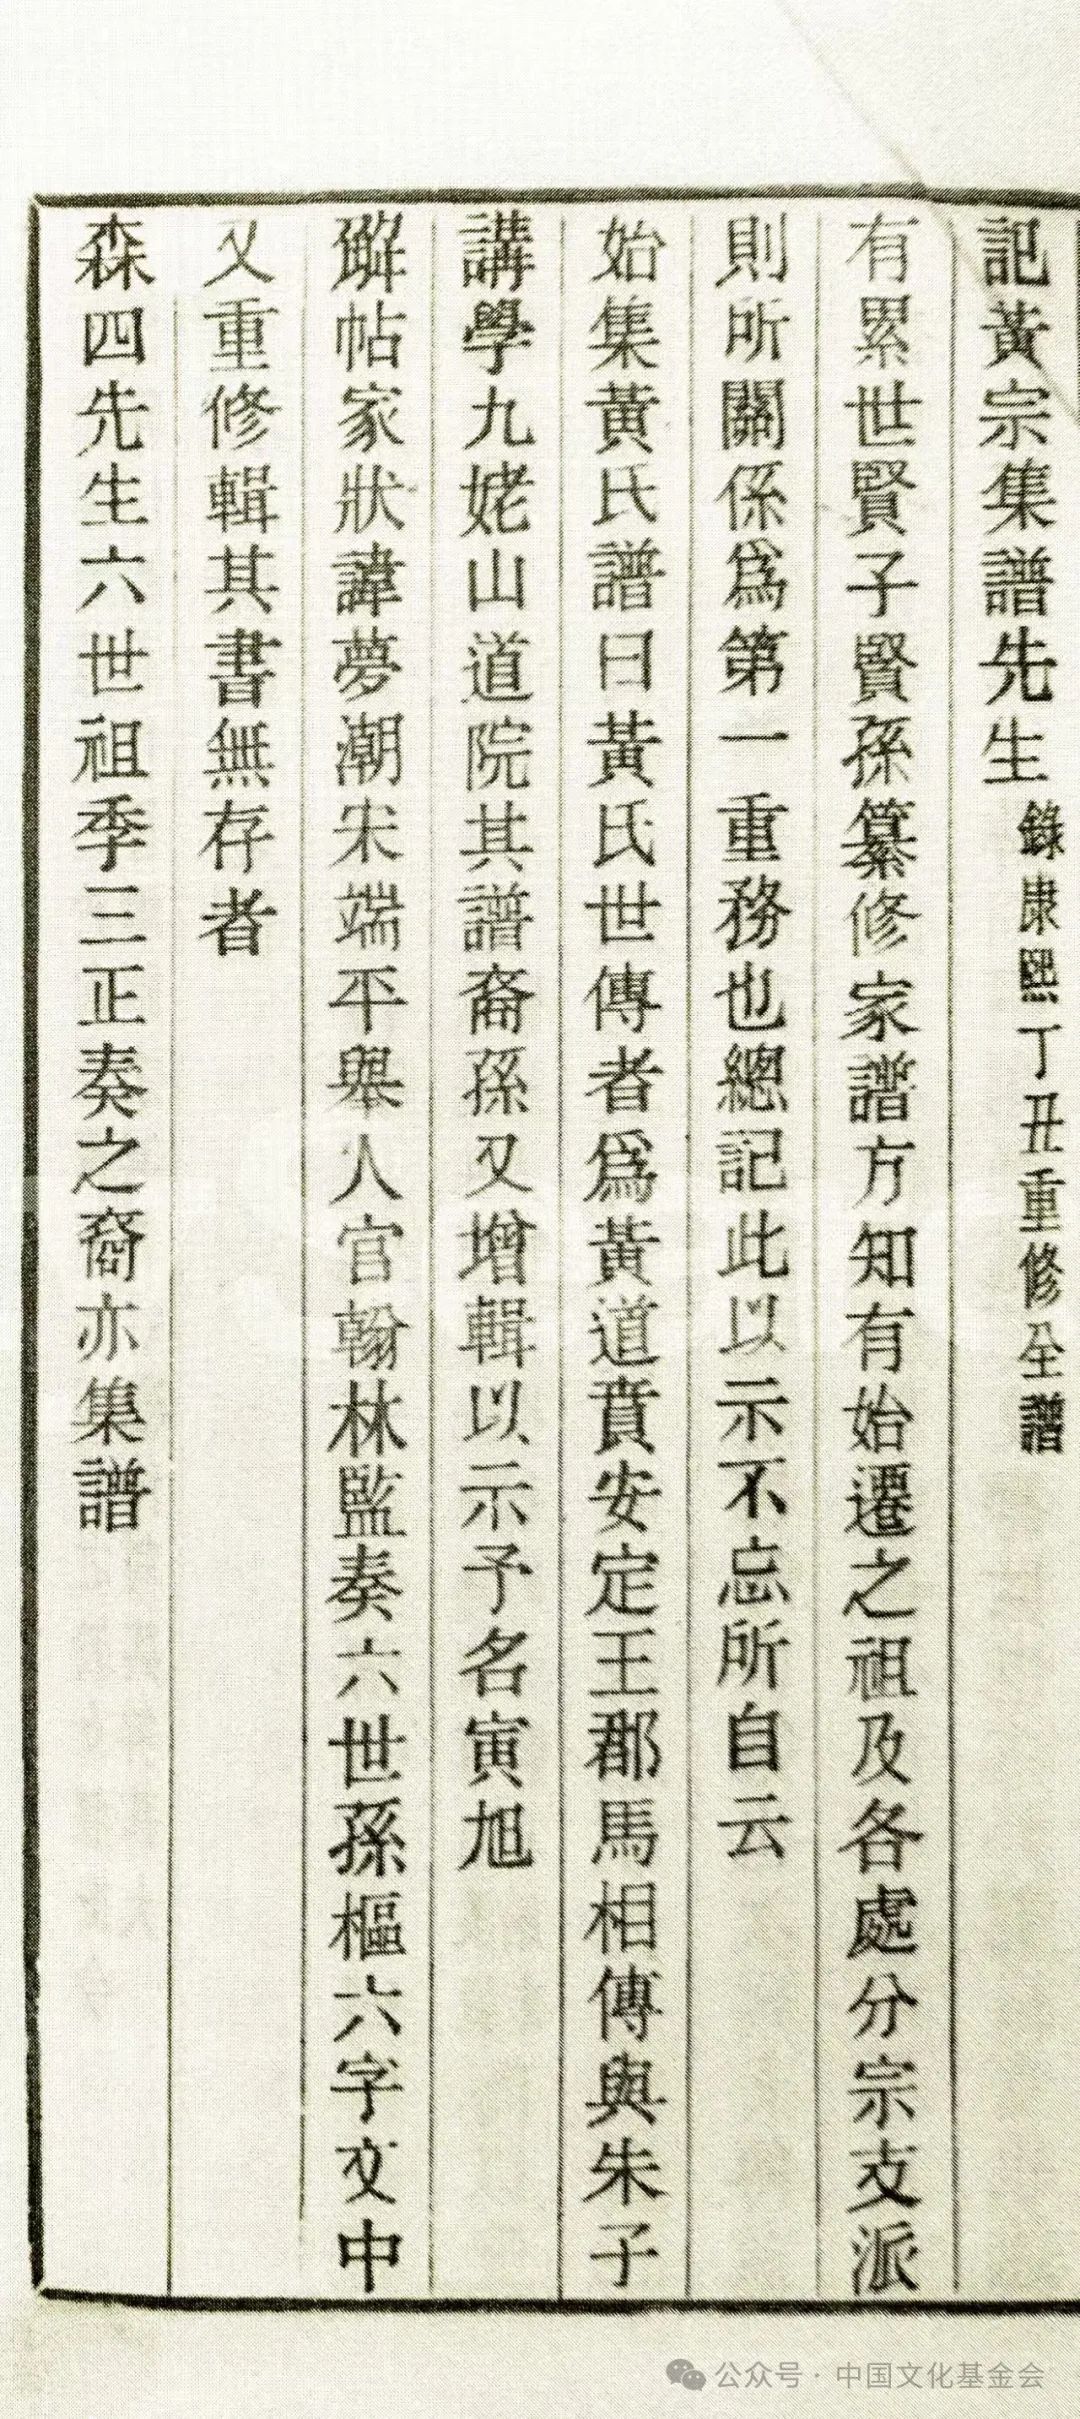 記黃宗集譜先生 錄康熙丁丑重修全譜
有累世賢子賢孫纂修家譜方知有始遷之祖及各處分宗支派
則所關係爲第一重務也總記此以示不忘所自云
始集黃氏譜曰黃氏世傳者爲黃道賁安定王郡馬相傳與朱子
講學九姥山道院其譜裔孫又增輯以示予名寅旭
帖家狀諱夢潮宋端平舉人官翰林監奏六世孫樞六字文中
又重修輯其書無存者
森四先生六世祖季三正奏之裔亦集譜
公众号·中国文化基金会